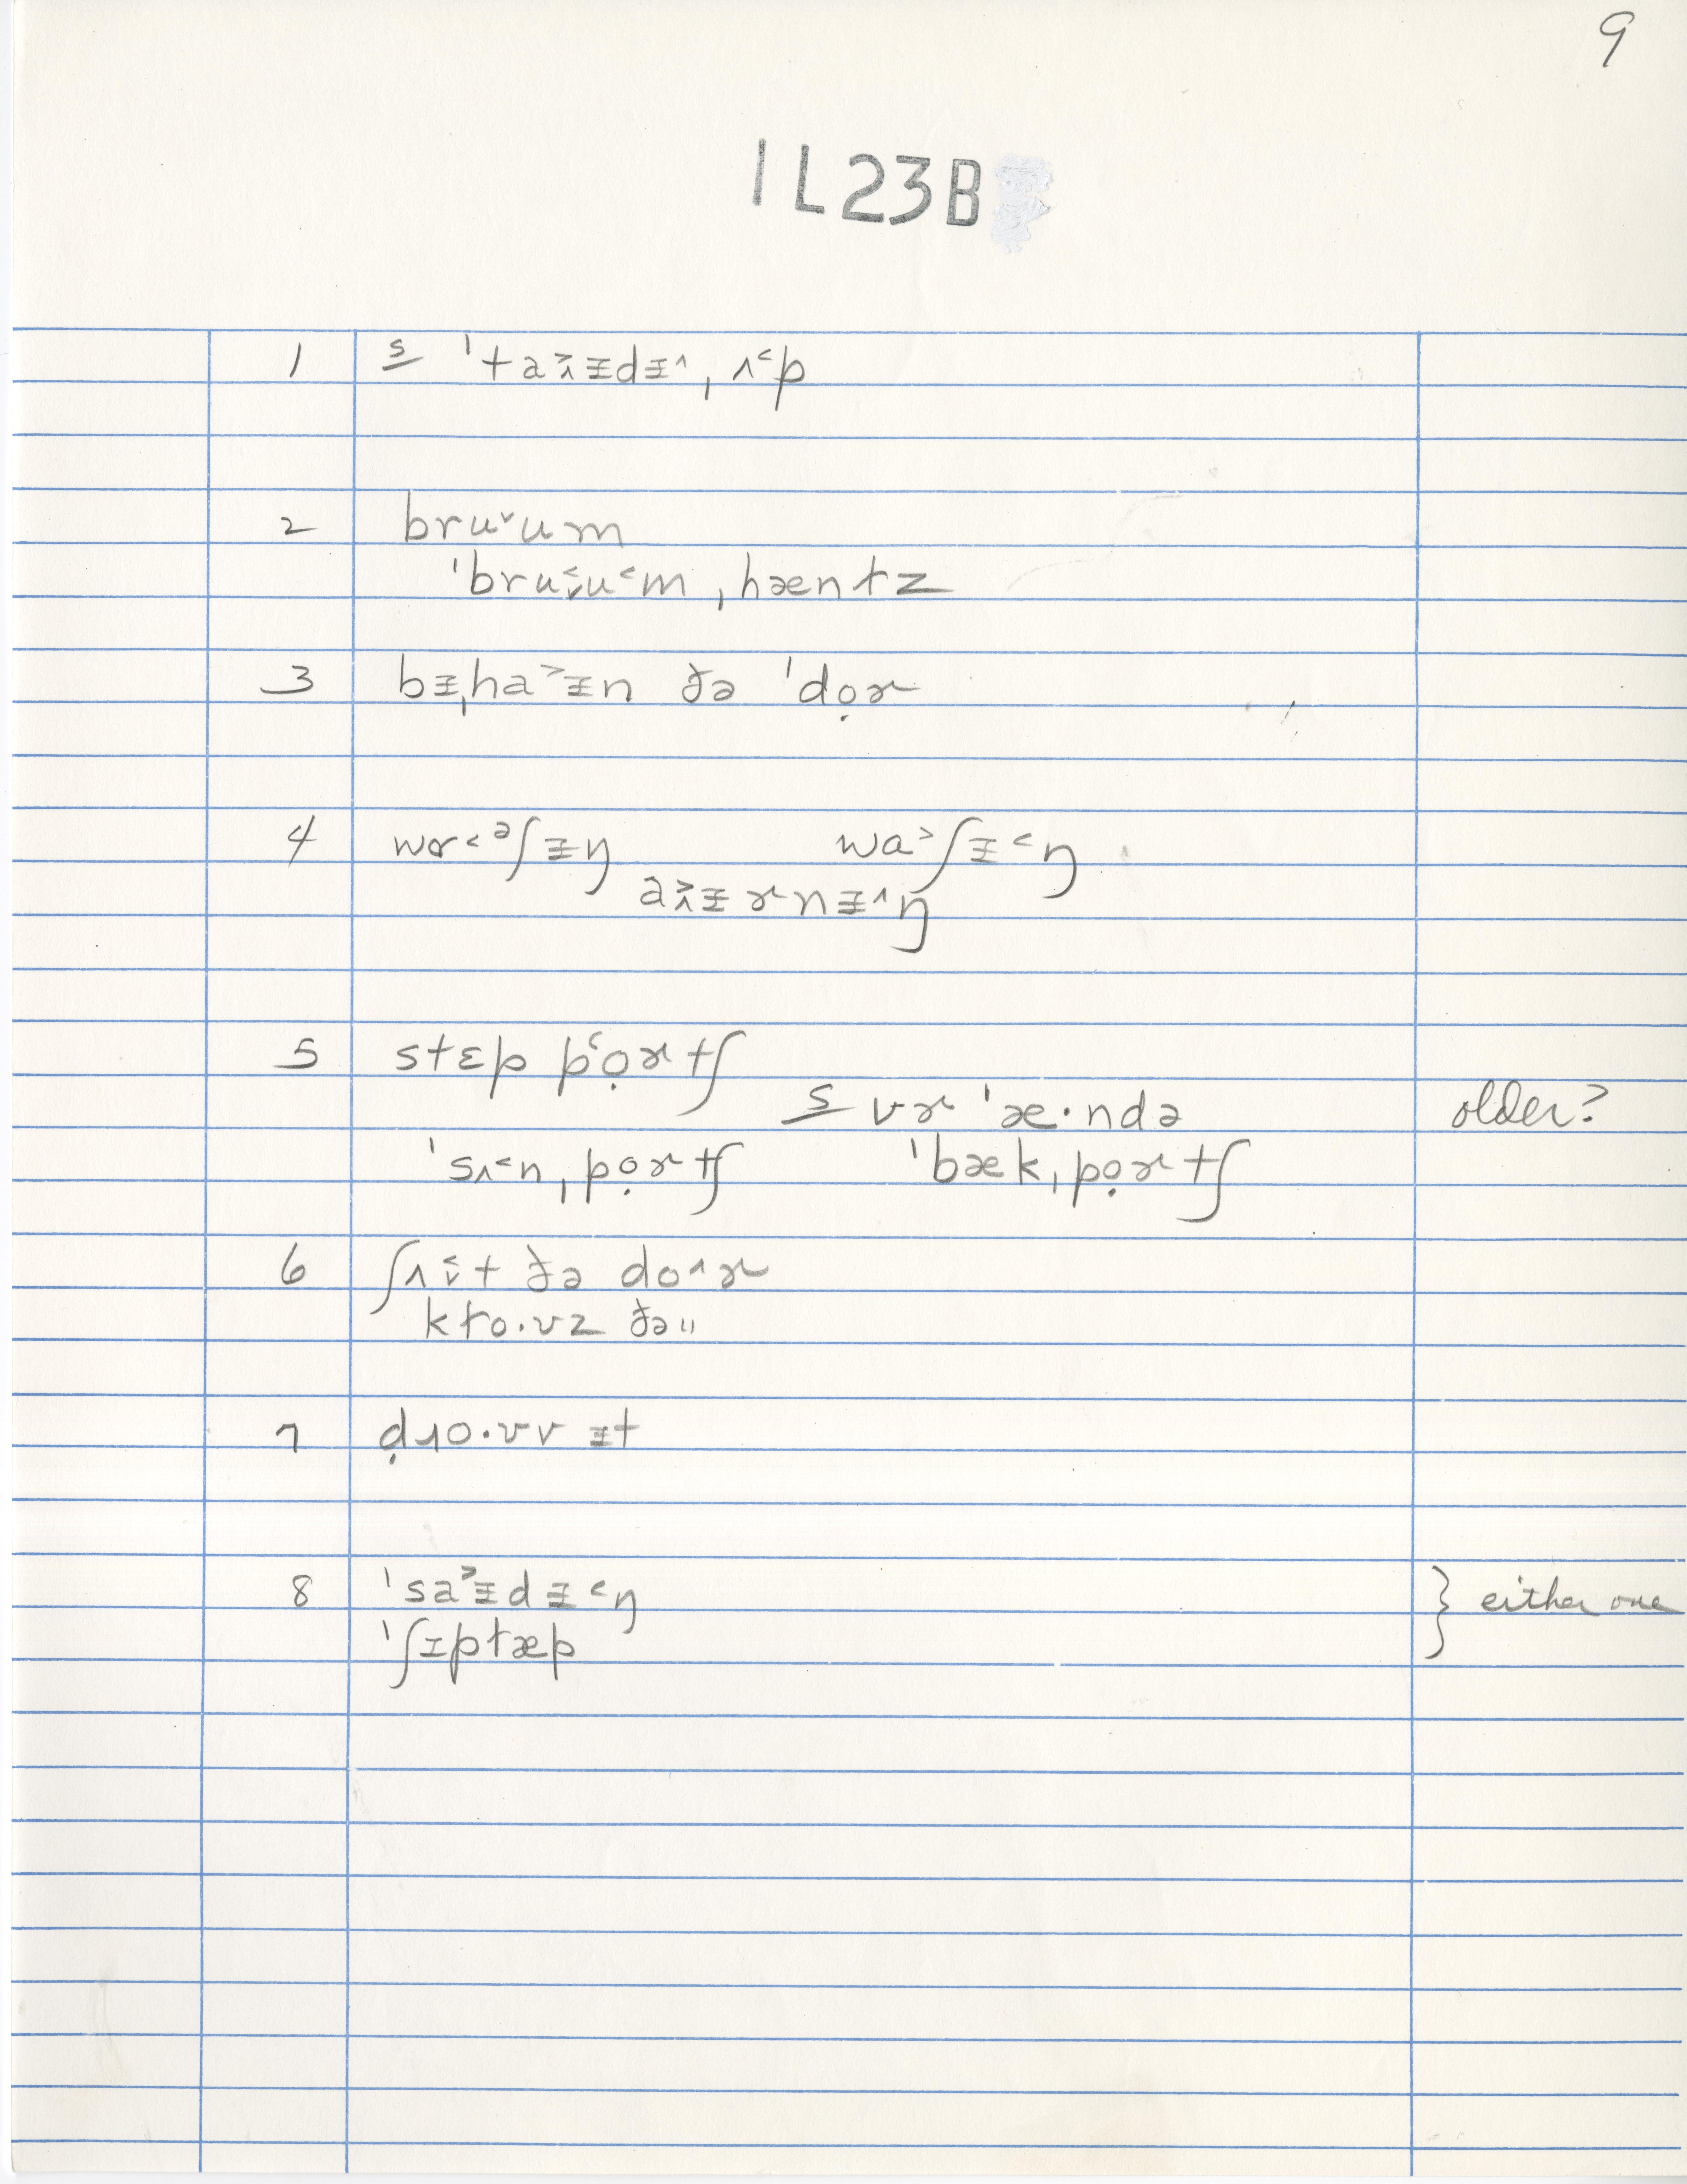 9
IL23B
1 s̲ ˈta˃˄ɪ̵dɪ̵˄ˌʌ˂p
2 bruˇum
ˈbru˂ˬu˂mˌhæntz
3 bɪ̵ˌha˃ɪ̵n ðə ˈdọɚ
4 wɑ˂ᵊʃɪ̵ŋ wa˃ʃɪ̵˂ŋ
a˃˄ɪ̵ɚnɪ̵˄ŋ
5 stɛp pʿọɚtʃ
s̲ vɚˈæ·ndə older?
ˈsʌ˂nˌpọɚtʃ ˈbækˌpọɚtʃ
6 ʃʌ˂ˬt ðə do˄ɚ
kɫo·ʊz ðə "
7 ḍɹo·ʊv ɪ̵t
8 ˈsa˃ɪ̵dɪ̵˂ŋ } either one
ˈʃɪpɫæp